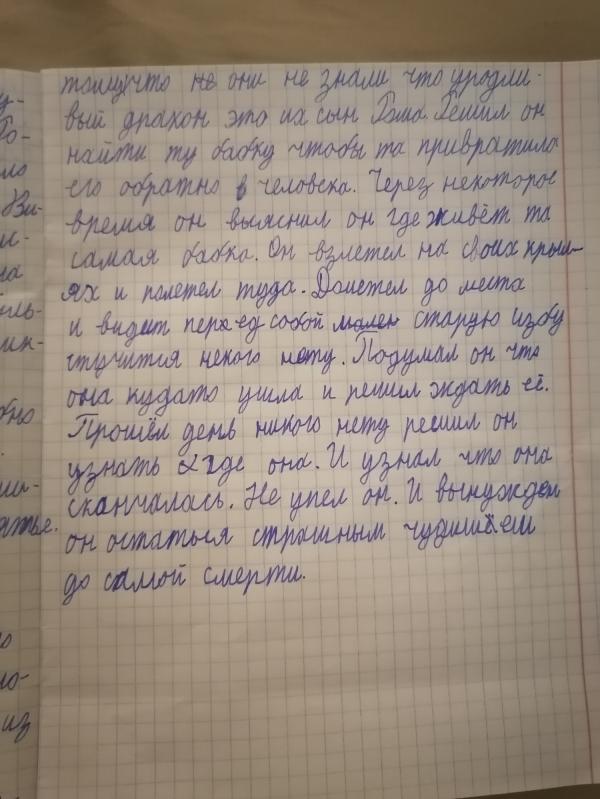 томучто не они не знали что уродли-
вый дракон это их сын Рома. Решил он
найти ту бабку чтобы та привратила
его обратно в человека. Через некоторое
время он выяснил он где живёт та
самая бабка. Он взлетел на своих крыл-
ях и полетел туда. Долетел до места
и видит перед собой старую избу
стучится некого нету. Подумал он что
она кудато ушла и решил ждать её.
Прошёл день никого нету решил он
узнать где она. И узнал что она
сканчалась. Не упел он. И вынужден
он остаться страшным чудищем
до самой смерти.
у-
Ро-
ло
Ви-
ис-
на
оль-
ик-
обно
ши-
атье.
ло-
из